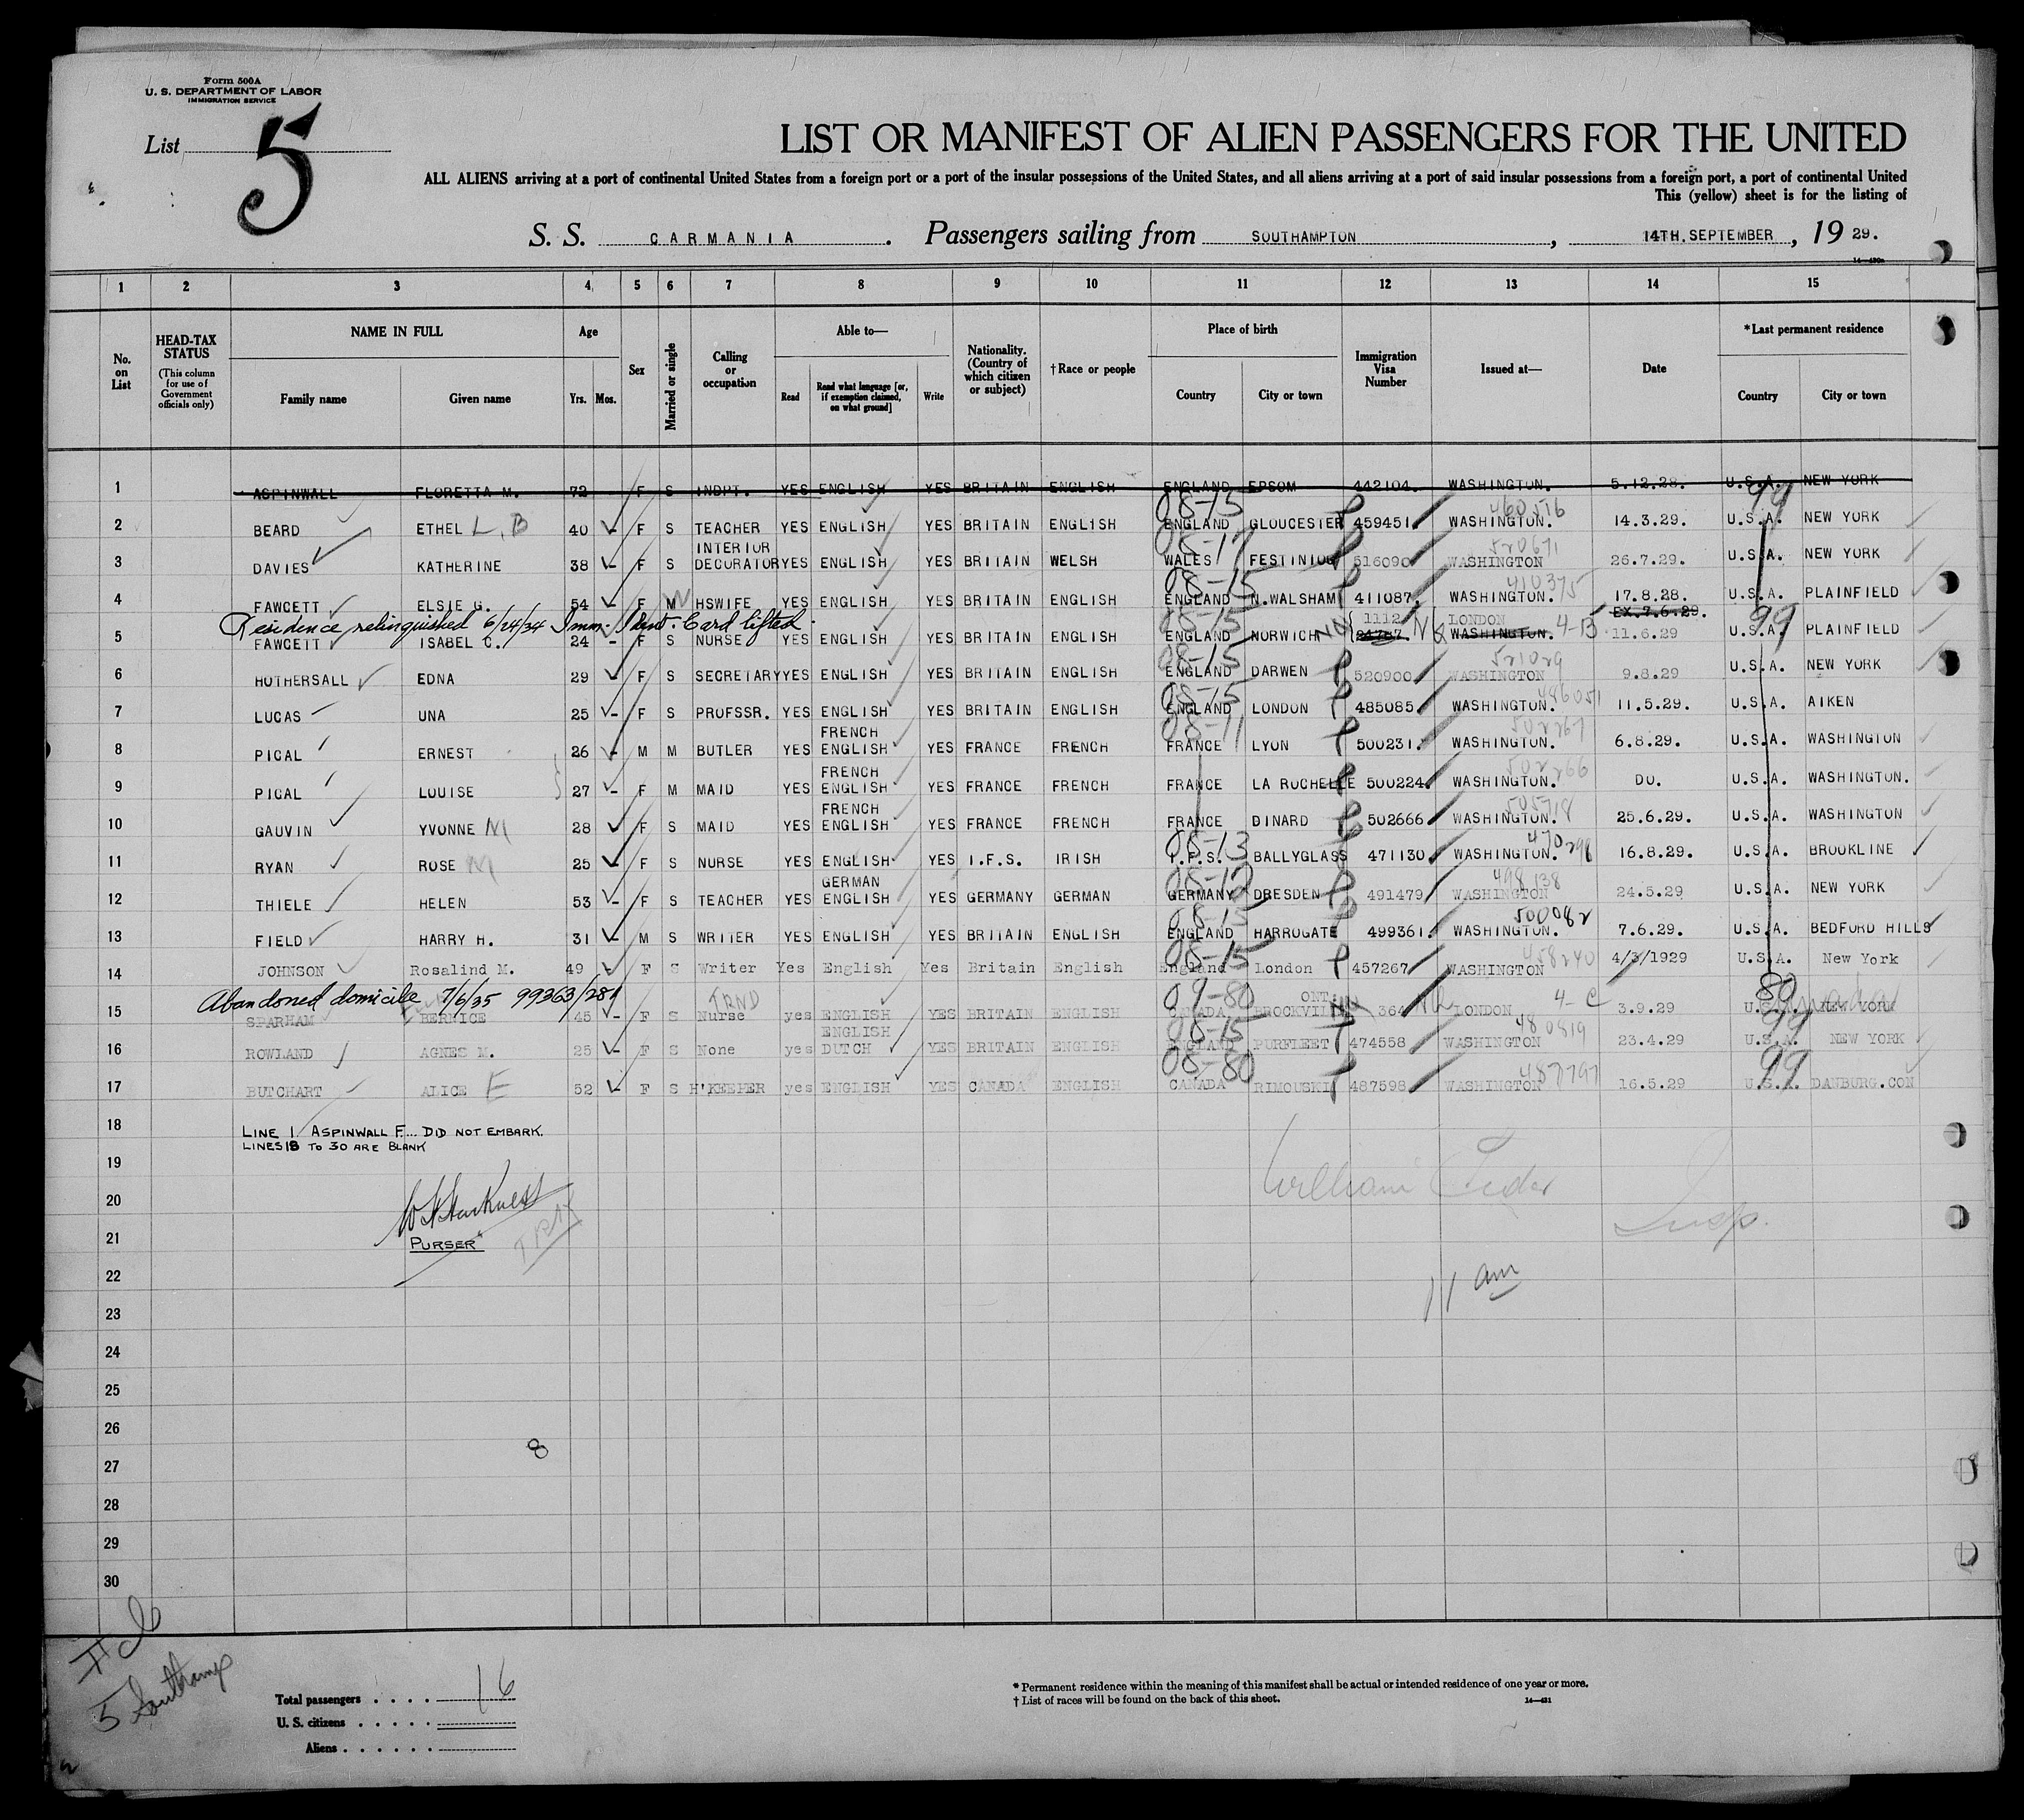 Form 500A
U. S. DEPARTMENT OF LABOR
IMMIGRATION SERVICE
List 5
LIST OR MANIFEST OF ALIEN PASSENGERS FOR THE UNITED
ALL ALIENS arriving at a port of continental United States from a foreign port or a port of the insular possessions of the United States, and all aliens arriving at a port of said insular possessions from a foreign port, a port of continental United
This (yellow) sheet is for the listing of
S. S. CARMANIA . Passengers sailing from SOUTHAMPTON , 14TH. SEPTEMBER , 19 29.
1 2 3 4 5 6 7 8 9 10 11 12 13 14 15
No. on List
HEAD-TAX STATUS
(This column for use of Government officials only)
NAME IN FULL
Family name Given name
Age
Yrs. Mos.
Sex
Married or single
Calling or occupation
Able to—
Read Read what language [or, if exemption claimed, on what ground] Write
Nationality. (Country of which citizen or subject)
†Race or people
Place of birth
Country City or town
Immigration Visa Number
Issued at—
Date
*Last permanent residence
Country City or town
1 ASPINWALL FLORETTA M. 72 F S INDPT. YES ENGLISH YES BRITAIN ENGLISH ENGLAND EPSOM 442104. WASHINGTON. 5.12.28. U.S.A. NEW YORK
08-15 460516 99
2 BEARD ETHEL L, B 40 - F S TEACHER YES ENGLISH YES BRITAIN ENGLISH ENGLAND GLOUCESTER 459451. WASHINGTON. 14.3.29. U.S.A. NEW YORK
08-17 520671
3 DAVIES KATHERINE 38 - F S INTERIOR DECORATOR YES ENGLISH YES BRITAIN WELSH WALES FESTINIOG 516090 WASHINGTON 26.7.29. U.S.A. NEW YORK
08-15 410375
4 FAWCETT ELSIE G. 54 - F M W HSWIFE YES ENGLISH YES BRITAIN ENGLISH ENGLAND N.WALSHAM 411087. WASHINGTON. 17.8.28. U.S.A. PLAINFIELD
Residence relinquished 6/24/34 Imm. Ident. Card lifted.
08-15 1112 LONDON 4-B EX.7.6.29. 99
5 FAWCETT ISABEL C. 24 - F S NURSE YES ENGLISH YES BRITAIN ENGLISH ENGLAND NORWICH WASHINGTON. 11.6.29 U.S.A. PLAINFIELD
08-15 521029
6 HOTHERSALL EDNA 29 - F S SECRETARY YES ENGLISH YES BRITAIN ENGLISH ENGLAND DARWEN 520900 WASHINGTON 9.8.29 U.S.A. NEW YORK
08-15 486051
7 LUCAS UNA 25 - F S PROFSSR. YES ENGLISH YES BRITAIN ENGLISH ENGLAND LONDON 485085. WASHINGTON. 11.5.29. U.S.A. AIKEN
08-11 502267
8 PICAL ERNEST 26 - M M BUTLER YES FRENCH ENGLISH YES FRANCE FRENCH FRANCE LYON 500231. WASHINGTON. 6.8.29. U.S.A. WASHINGTON
502266
9 PICAL LOUISE 27 - F M MAID YES FRENCH ENGLISH YES FRANCE FRENCH FRANCE LA ROCHELLE 500224. WASHINGTON. DO. U.S.A. WASHINGTON.
505718
10 GAUVIN YVONNE M 28 - F S MAID YES FRENCH ENGLISH YES FRANCE FRENCH FRANCE DINARD 502666 WASHINGTON. 25.6.29. U.S.A. WASHINGTON
08-13 470298
11 RYAN ROSE M 25 - F S NURSE YES ENGLISH YES I.F.S. IRISH I.F.S. BALLYGLASS 471130. WASHINGTON. 16.8.29. U.S.A. BROOKLINE
08-12 498138
12 THIELE HELEN 53 - F S TEACHER YES GERMAN ENGLISH YES GERMANY GERMAN GERMANY DRESDEN 491479 WASHINGTON 24.5.29 U.S.A. NEW YORK
08-15 500082
13 FIELD HARRY H. 31 - M S WRITER YES ENGLISH YES BRITAIN ENGLISH ENGLAND HARROGATE 499361. WASHINGTON. 7.6.29. U.S.A. BEDFORD HILLS
08-15 458240
14 JOHNSON Rosalind M. 49 F S Writer Yes English Yes Britain English England London 457267 WASHINGTON 4/3/1929 U.S.A. New York
Abandoned domicile 7/6/35 99363/281
TRND 09-80 ONT. 4-C 80 Canada
15 SPARHAM BERNICE 45 - F S Nurse yes ENGLISH YES BRITAIN ENGLISH CANADA BROCKVILLE 364 LONDON 3.9.29 U.S.A. NEW YORK
08-15 480819 99
16 ROWLAND AGNES M. 25 - F S None yes ENGLISH DUTCH YES BRITAIN ENGLISH ENGLAND PURFLEET 474558 WASHINGTON 23.4.29 U.S.A. NEW YORK
08-80 487797 99
17 BUTCHART ALICE E 52 - F S H'KEEPER yes ENGLISH YES CANADA ENGLISH CANADA RIMOUSKI 487598 WASHINGTON 16.5.29 U.S.A. DANBURG.CON
18 LINE 1. ASPINWALL F... DID NOT EMBARK.
LINES 18 TO 30 ARE BLANK
19
20
21 PURSER
William
Insp.
22 11 am
23
24
25
26
8
27
28
29
30
5 Southamp
Total passengers . . . . 16
U. S. citizens . . . . .
Aliens . . . . . .
* Permanent residence within the meaning of this manifest shall be actual or intended residence of one year or more.
† List of races will be found on the back of this sheet. 14—431